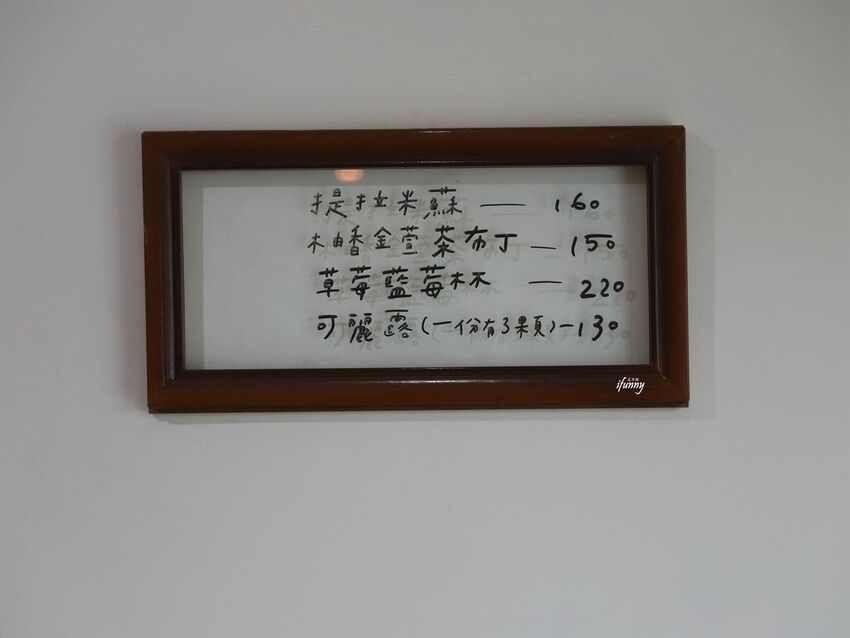 提拉米蘇 — 160
柚香金萱茶布丁 — 150
草莓藍莓杯 — 220
可麗露(一份有3顆)—130
ifunny